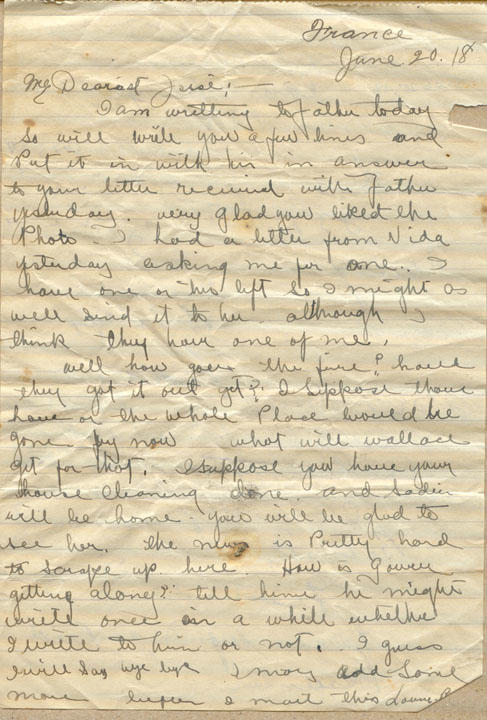 France
June. 20. 18
My Dearest
I am writting to father today
so will write you a few lines and
Put it in with his in answer
to your letter recieved with Father
yesterday. very glad you liked the
Photo - I had a letter from Nida
yesterday asking me for one. I
have one or his left so I might as
well send it to her although I
think they have one of me.
well how goes the fire? have
they got it out yet? I Suppose they
have or the whole Place would be
gone by now what will wallace
get for that. I suppose you have your
house cleaning done. and Sadie
will be home you will be glad to
see her. The news is Pretty hard
to scrape up here. How is Gower
getting along? tell him he might
write once in a while whether
I write to him or not. I guess
I will Say bye bye I may add Some
more before I mail this